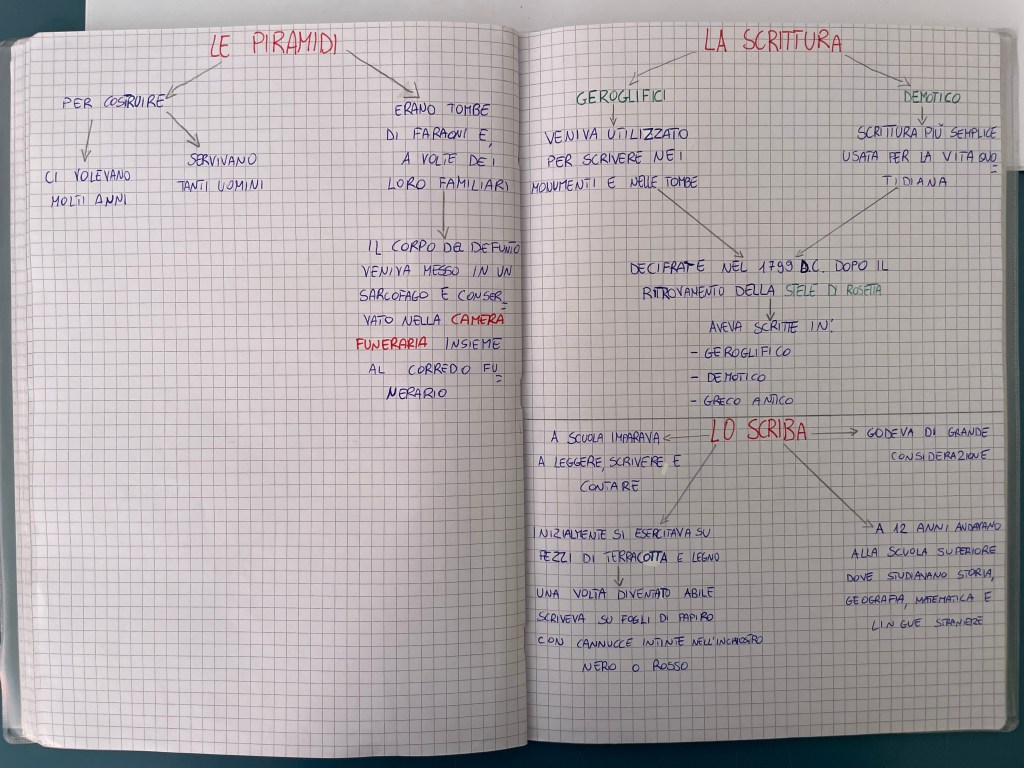 LE PIRAMIDI
PER COSTRUIRE
CI VOLEVANO
MOLTI ANNI
SERVIVANO
TANTI UOMINI
ERANO TOMBE
DI FARAONI E,
A VOLTE DEI
LORO FAMILIARI
IL CORPO DEL DEFUNTO
VENIVA MESSO IN UN
SARCOFAGO E CONSER_
VATO NELLA CAMERA
FUNERARIA INSIEME
AL CORREDO FU_
NERARIO
LA SCRITTURA
GEROGLIFICI
VENIVA UTILIZZATO
PER SCRIVERE NEI
MONUMENTI E NELLE TOMBE
DEMOTICO
SCRITTURA PIÙ SEMPLICE
USATA PER LA VITA QUO
TIDIANA
DECIFRATE NEL 1799 D.C. DOPO IL
RITROVAMENTO DELLA STELE DI ROSETTA
AVEVA SCRITTE IN:
- GEROGLIFICO
- DEMOTICO
- GRECO ANTICO
LO SCRIBA
A SCUOLA IMPARAVA
A LEGGERE, SCRIVERE E
CONTARE
GODEVA DI GRANDE
CONSIDERAZIONE
INIZIALMENTE SI ESERCITAVA SU
PEZZI DI TERRACOTTA E LEGNO
UNA VOLTA DIVENTATO ABILE
SCRIVEVA SU FOGLI DI PAPIRO
CON CANNUCCE INTINTE NELL'INCHIOSTRO
NERO O ROSSO
A 12 ANNI ANDAVANO
ALLA SCUOLA SUPERIORE
DOVE STUDIAVANO STORIA,
GEOGRAFIA, MATEMATICA E
LINGUE STRANIERE